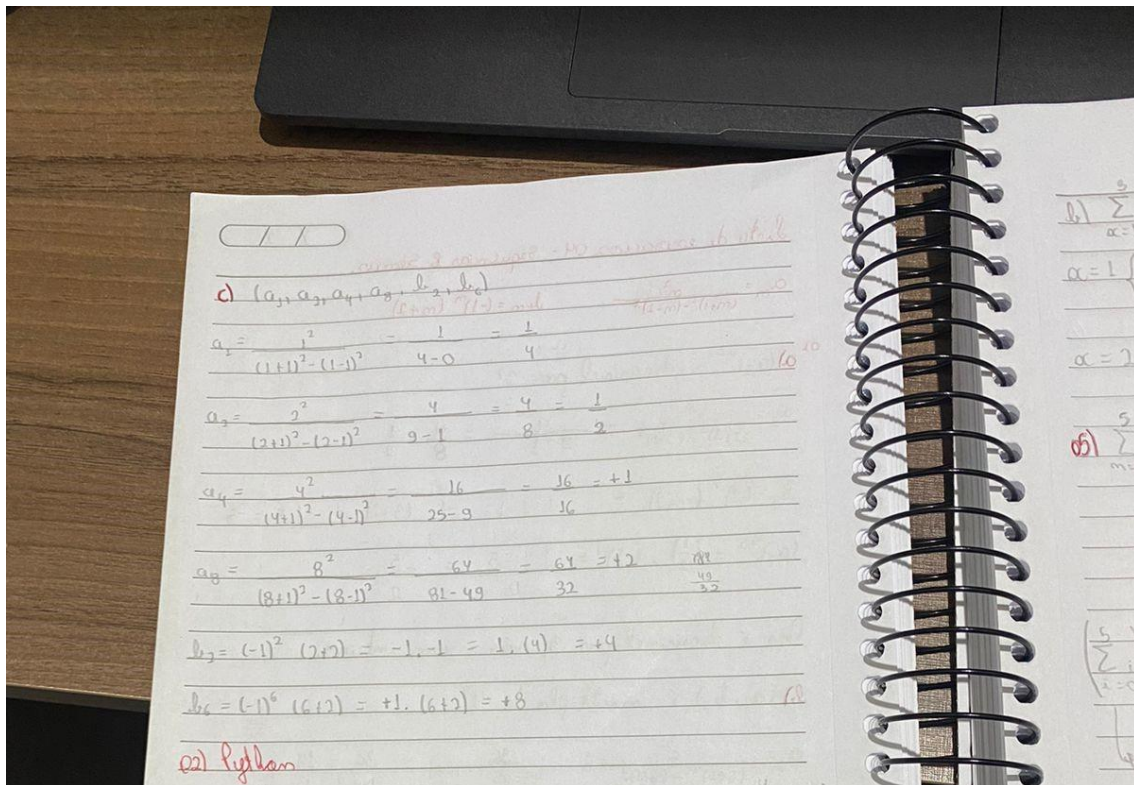 c) (a₁, a₂, a₄, a₈, b₂, b₆)
a₁ = 1² / (1+1)² - (1-1)² = 1 / 4-0 = 1/4
a₂ = 2² / (2+1)² - (2-1)² = 4 / 9-1 = 4/8 = 1/2
8
a₄ = 4² / (4+1)² - (4-1)² = 16 / 25-9 = 16/16 = +1
a₈ = 8² / (8+1)² - (8-1)² = 64 / 81-49 = 64/32 = +2
49
32
b₂ = (-1)² (2+2) = -1.-1 = 1.(4) = +4
b₆ = (-1)⁶ (6+2) = +1.(6+2) = +8
02) Python
b) 5 ∑ x=
x=1
x=2
05) 5 ∑ m=
5 ∑ i=0